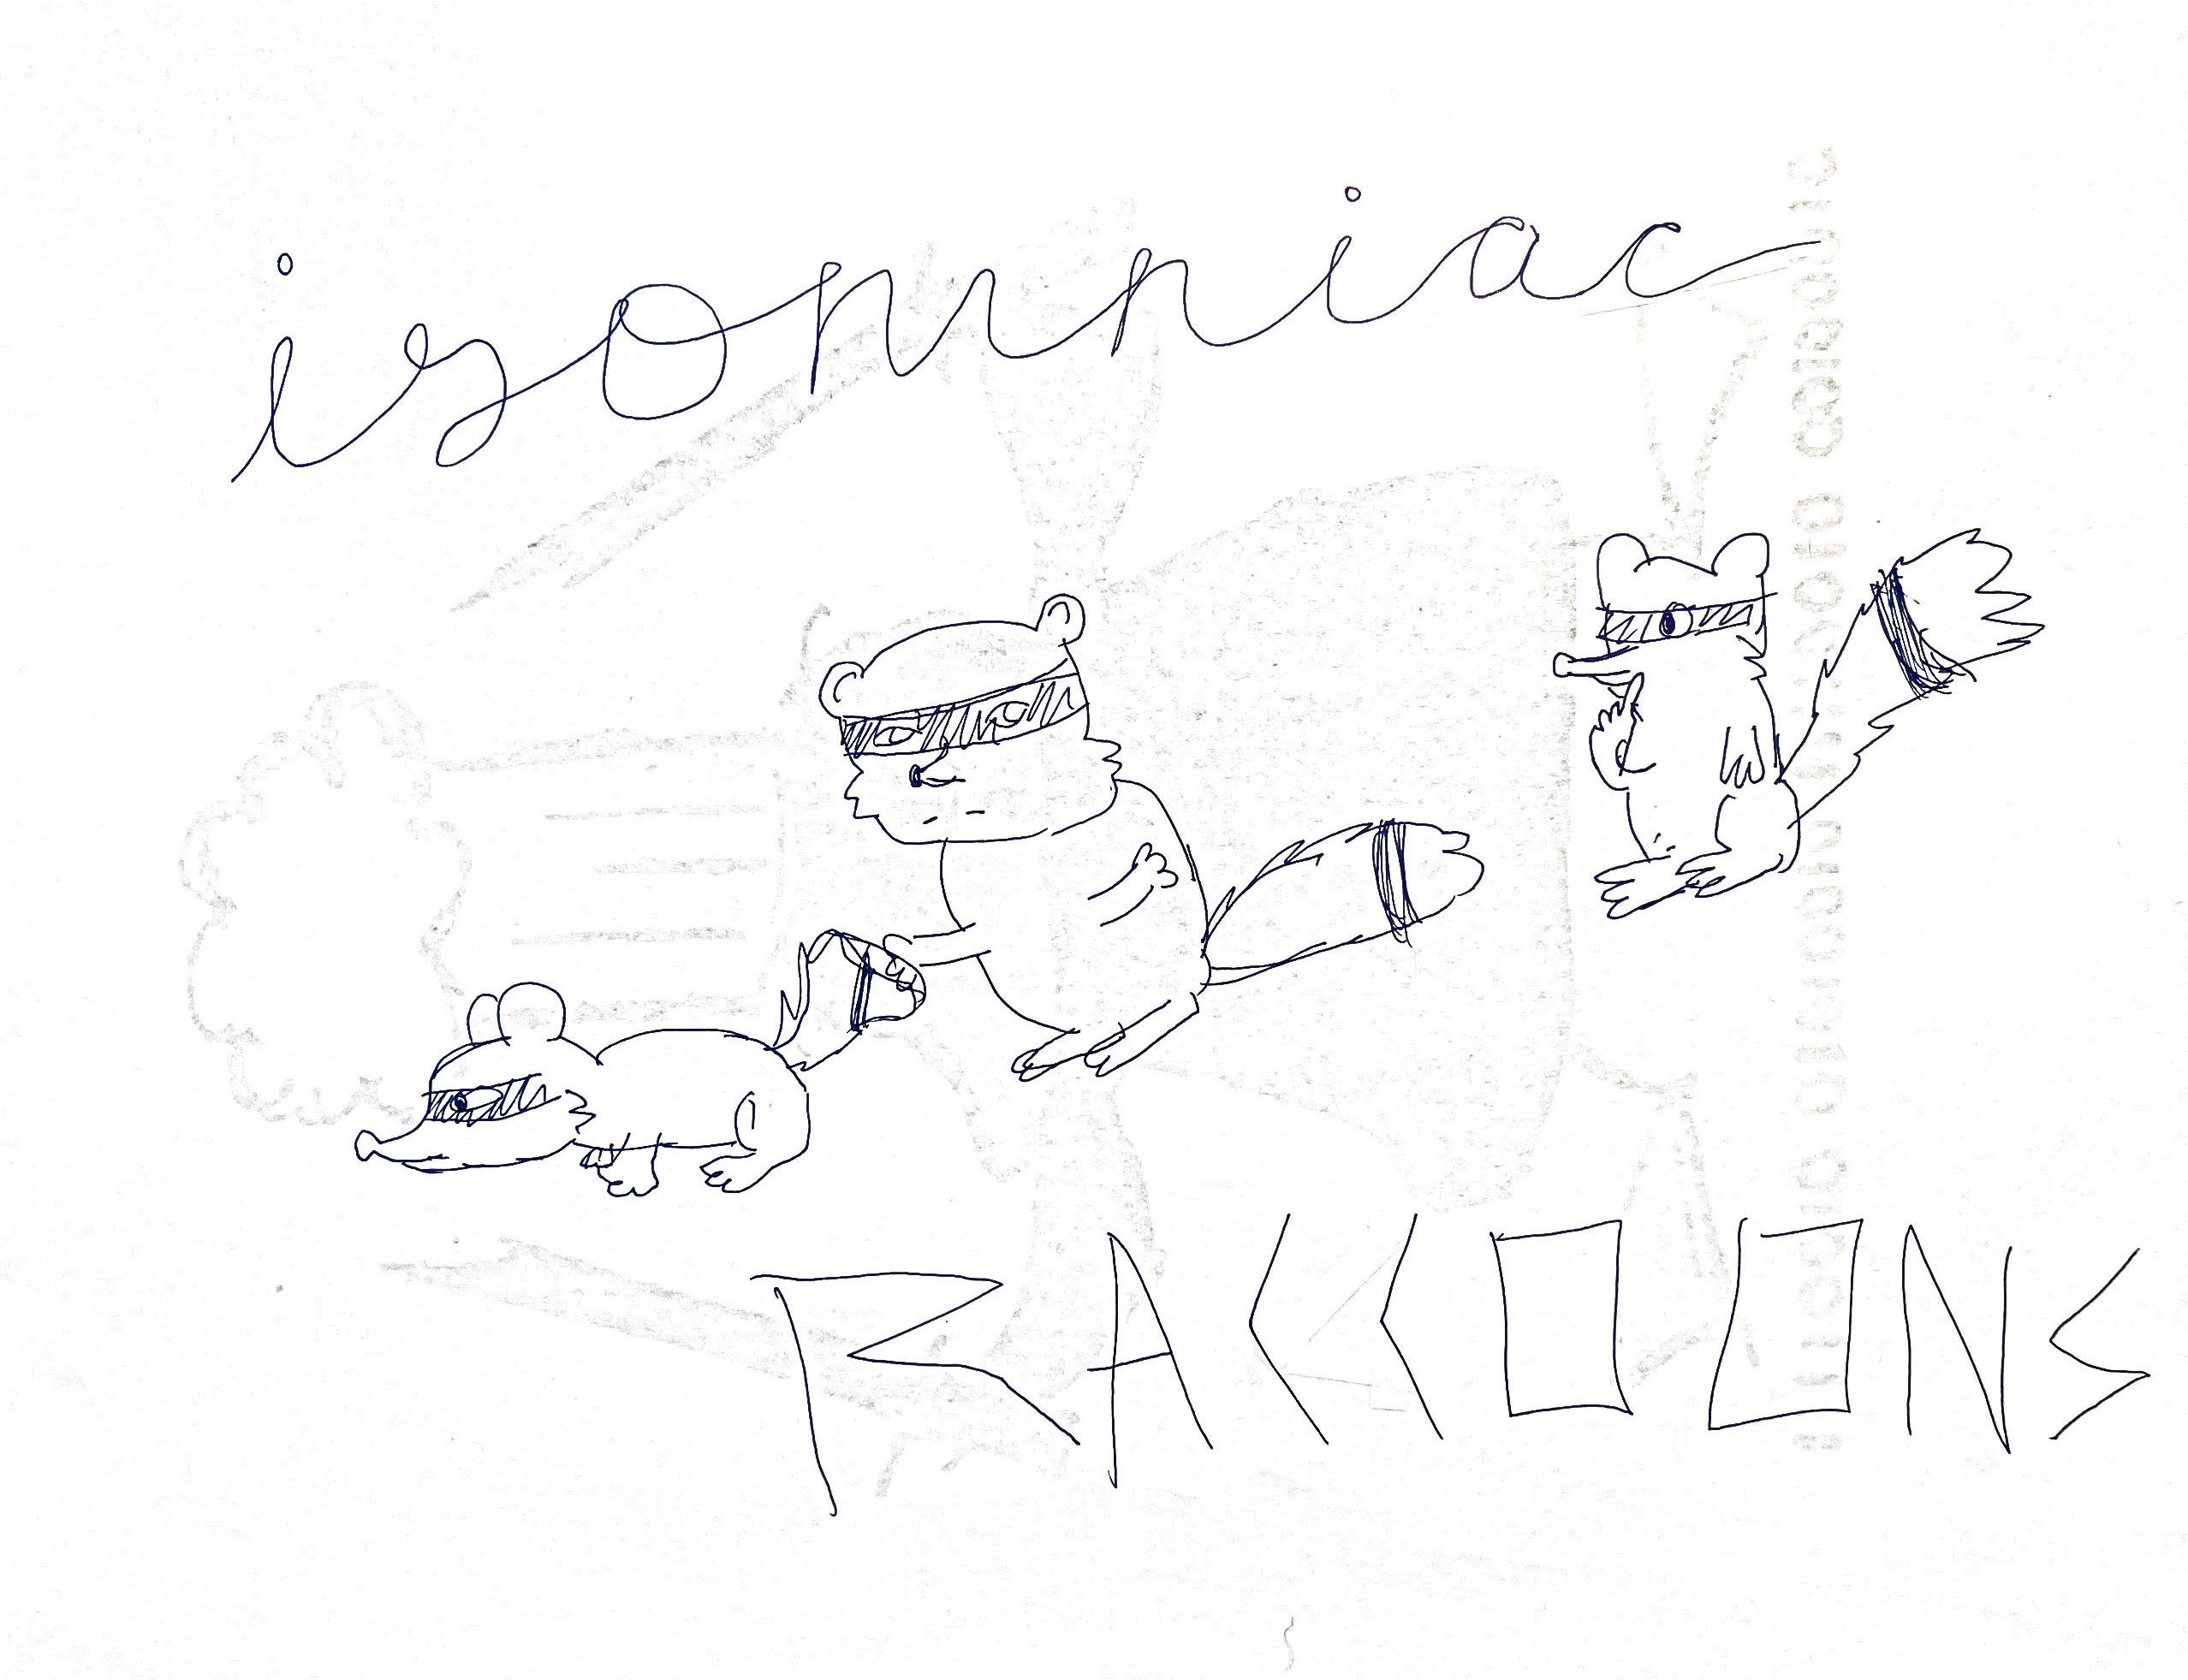 isomniac
RACCOONS